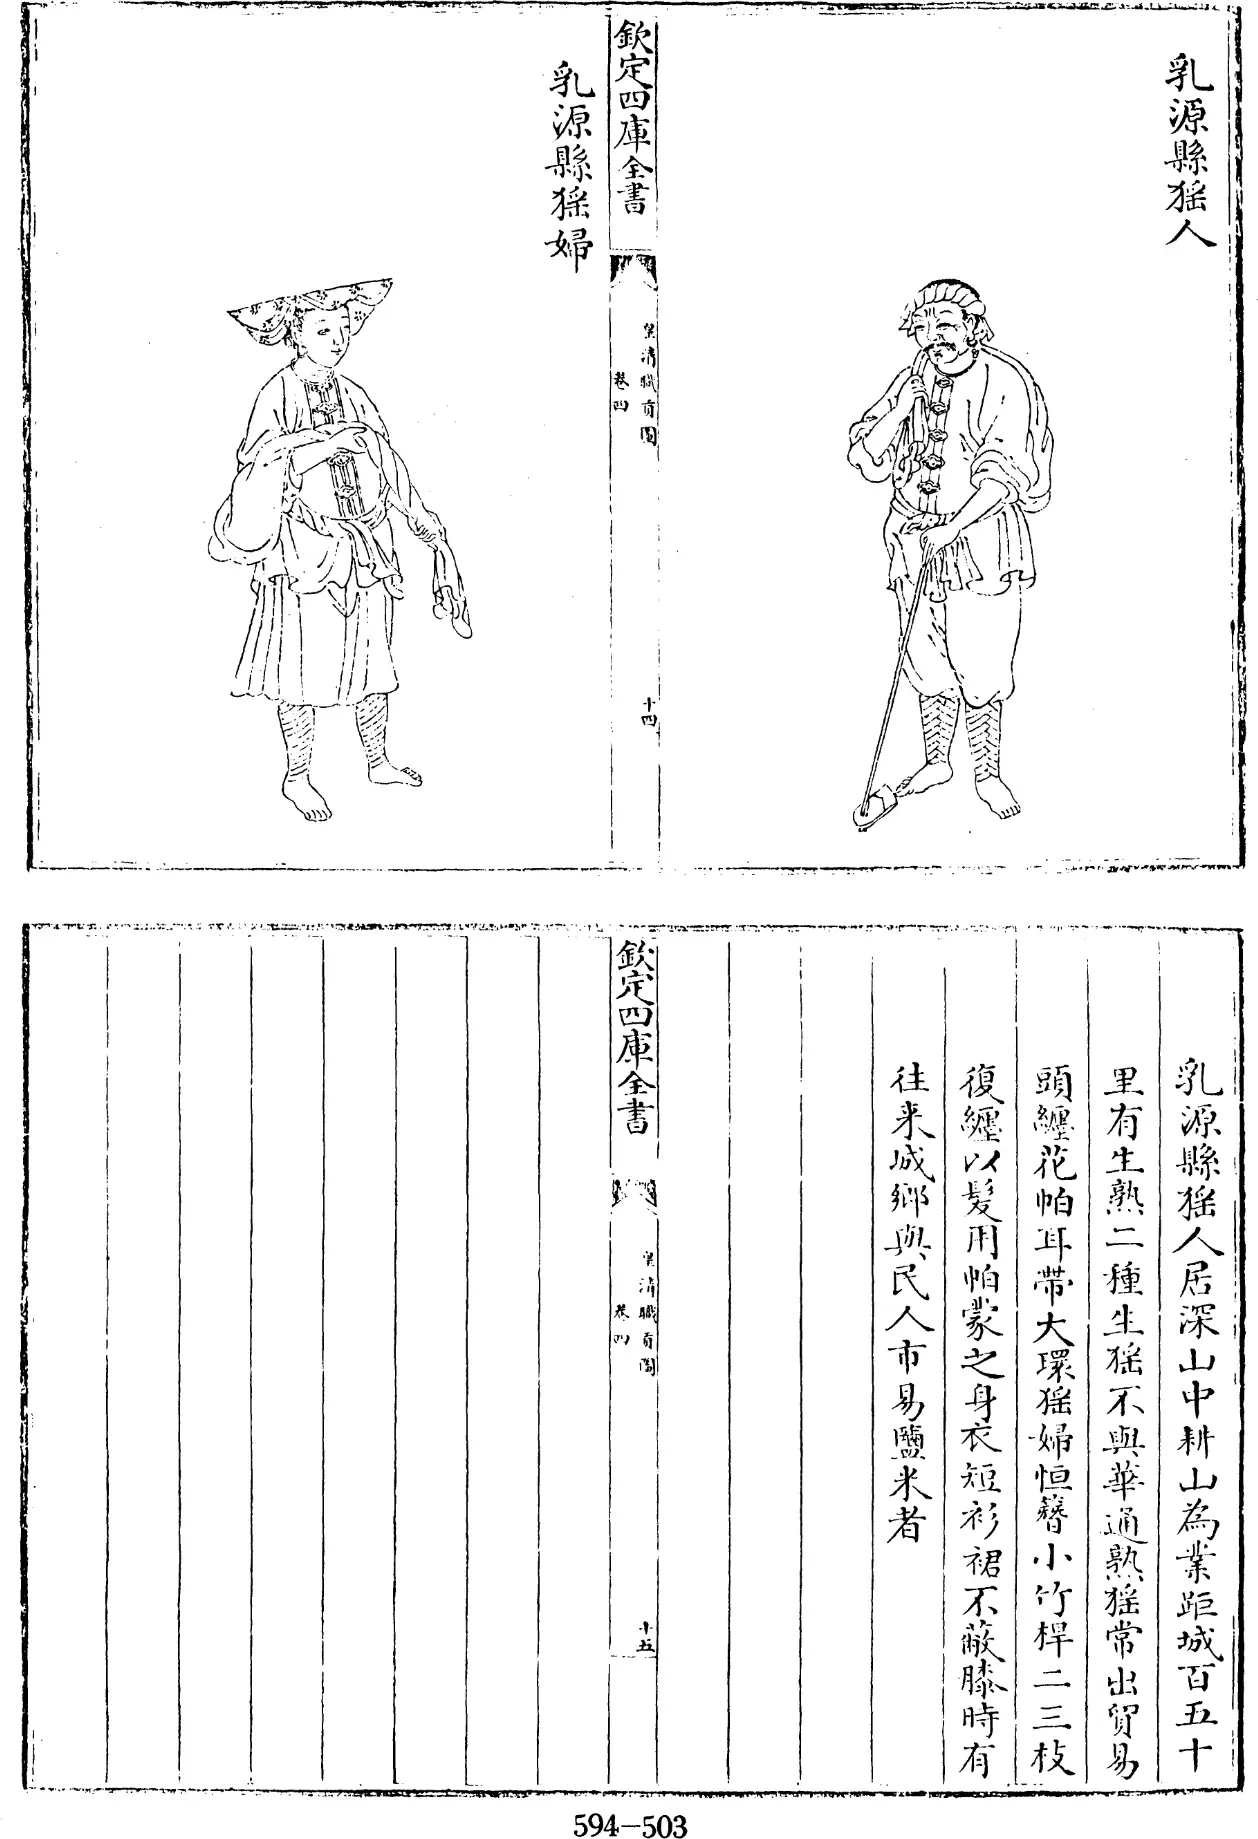 乳源縣猺人
欽定四庫全書
皇清職貢圖
卷四
十四
乳源縣猺婦
乳源縣猺人居深山中耕山為業距城百五十
里有生熟二種生猺不與華通熟猺常出貿易
頭纏花帕耳帶大環猺婦恒簪小竹桿二三枝
復纏以髮用帕蒙之身衣短衫裙不蔽膝時有
往來城鄉與民人市易鹽米者
欽定四庫全書
皇清職貢圖
卷四
十五
594-503